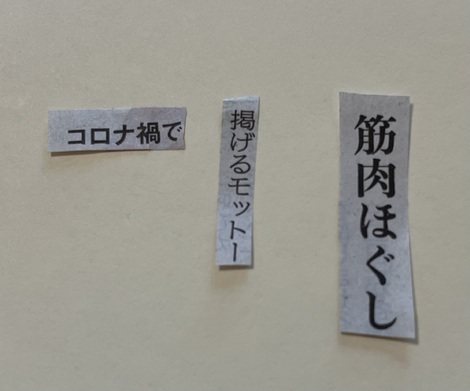 コロナ禍で
掲げるモットー
筋肉ほぐし